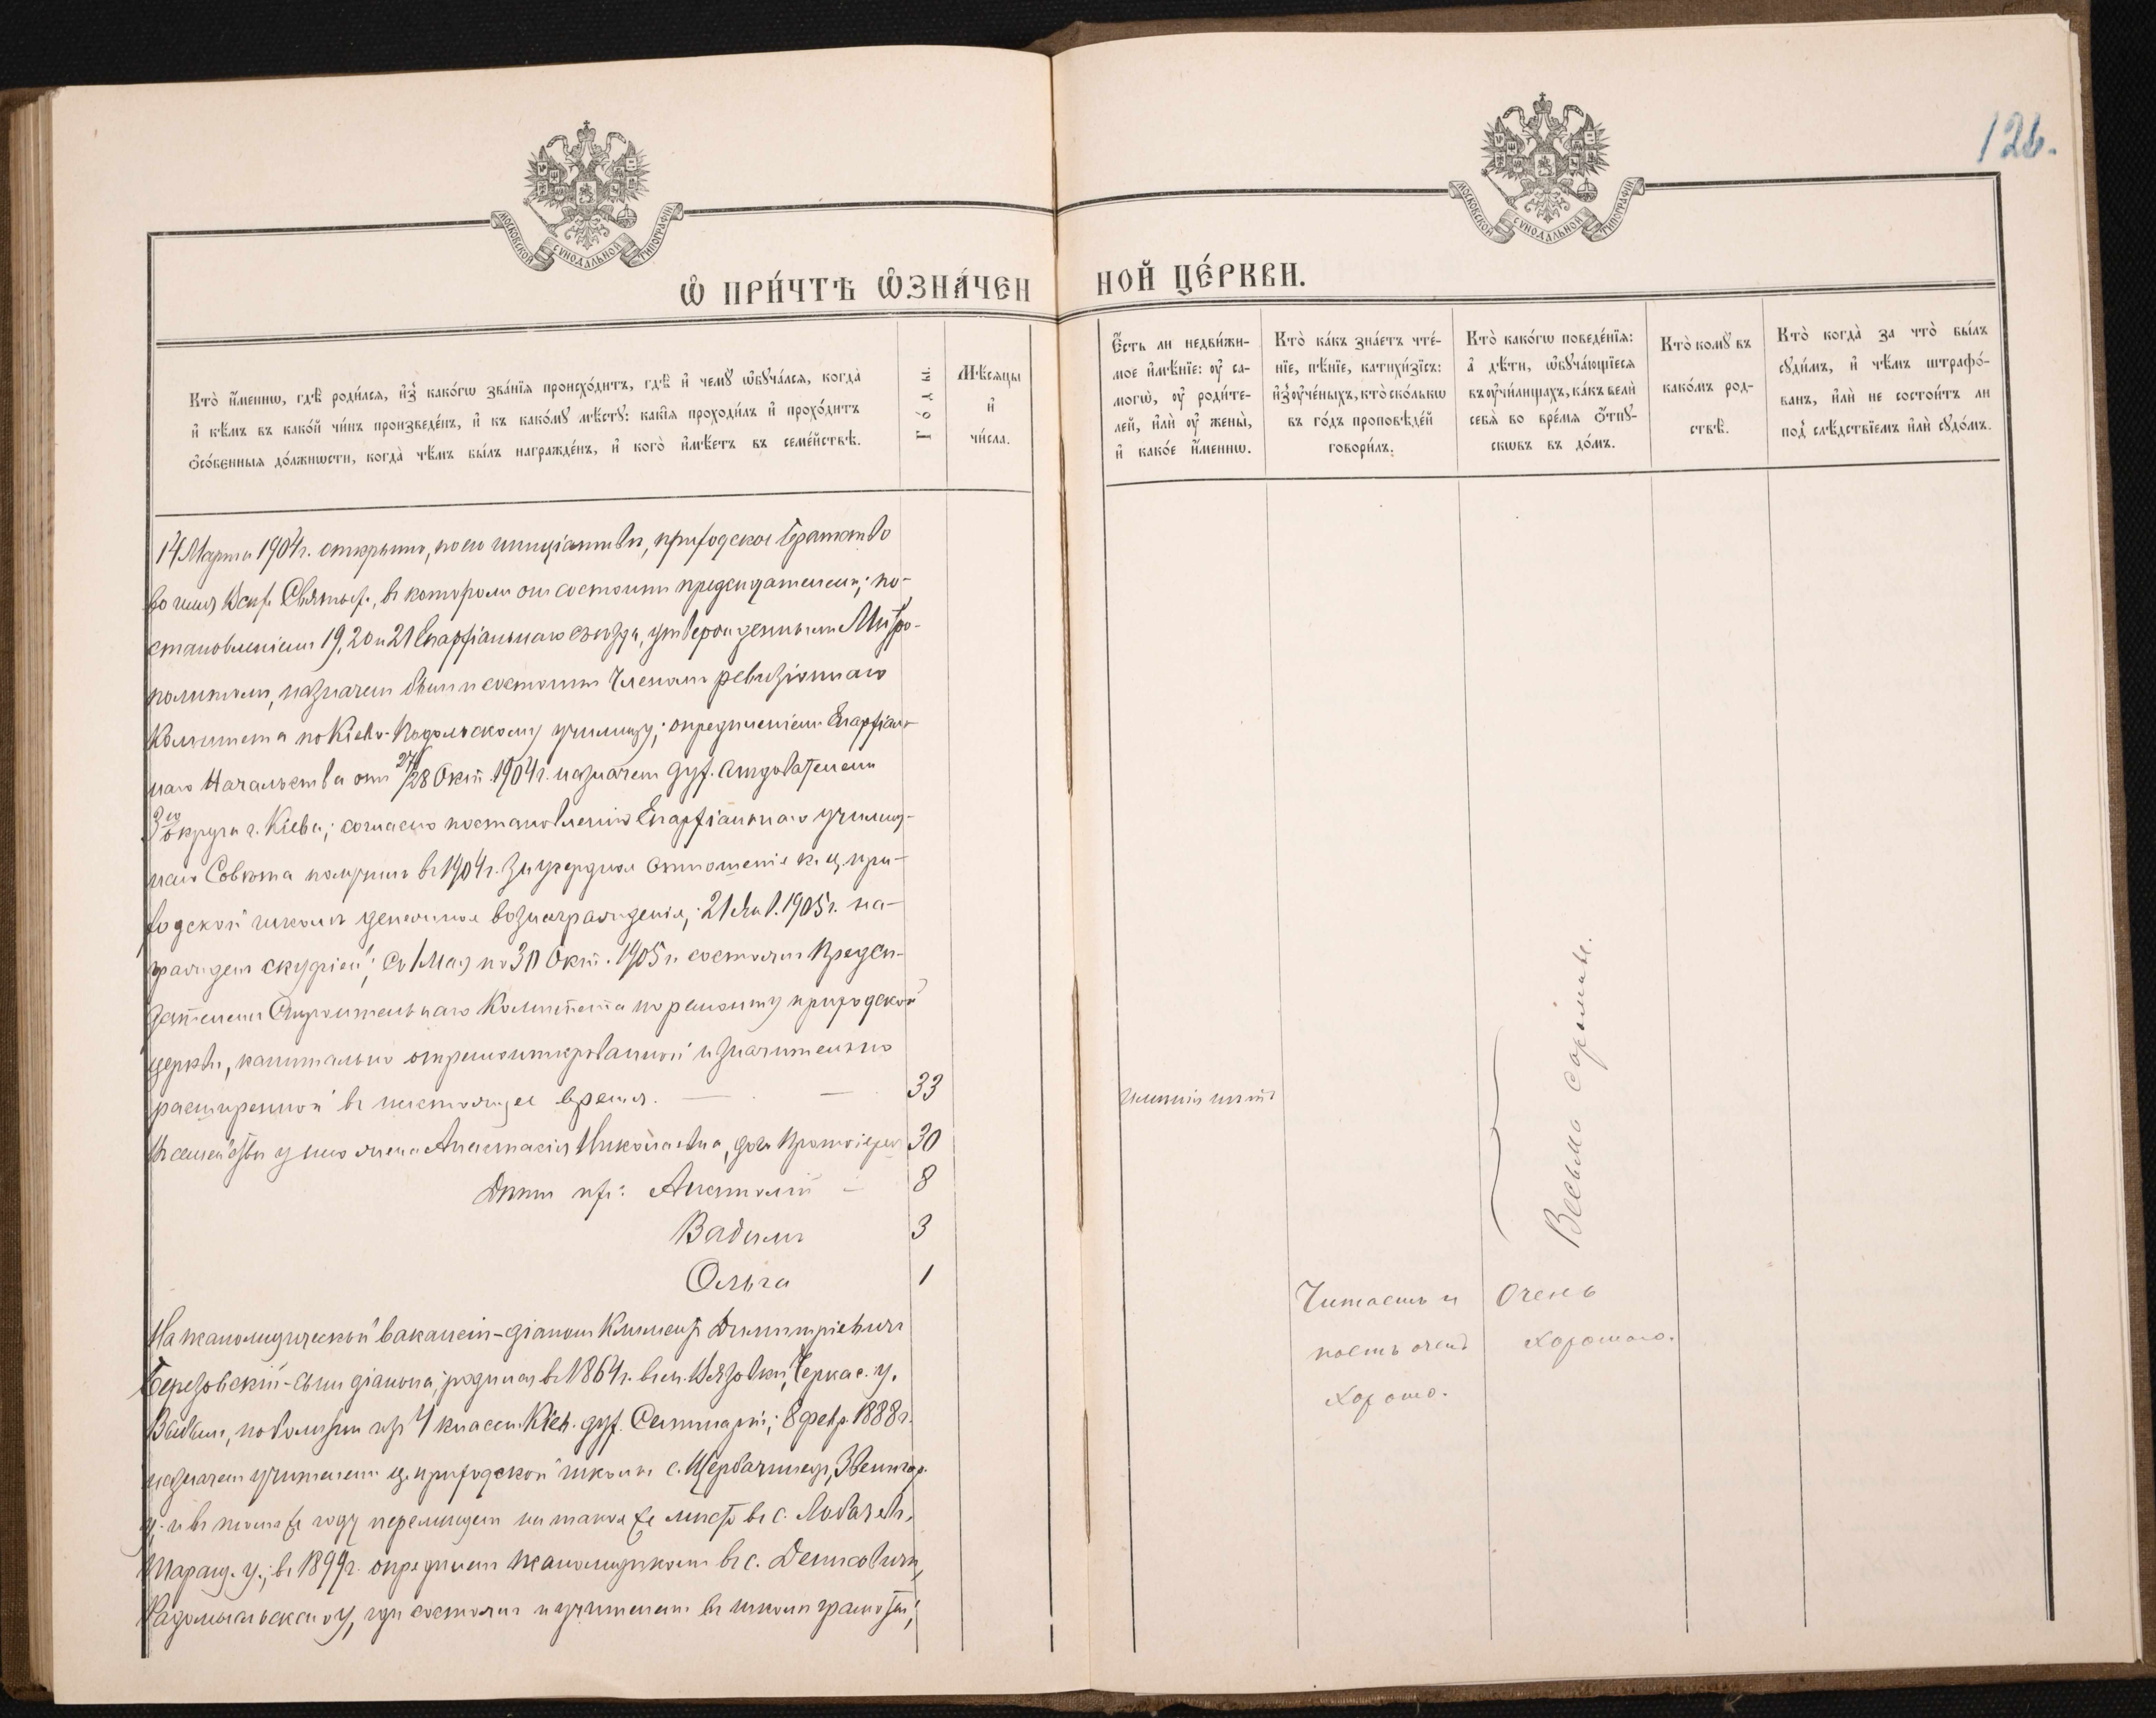 126.
МОСКОВСКОЙ СѴНОДАЛЬНОЙ ТИПОГРАФІИ
МОСКОВСКОЙ СѴНОДАЛЬНОЙ ТИПОГРАФІИ
Ѡ ПРИ́ЧТѢ ѠЗНА́ЧЕННОЙ ЦЕ́РКВИ.
Кто̀ и҆́меннѡ, гдѣ̀ роди́лсѧ, и҆з̾ како́гѡ зва́нїѧ происхо́дитъ, гдѣ̀ и҆ чемꙋ̀ ѡ҆бꙋча́лсѧ, когда̀
и҆ кѣ́мъ въ како́й чи́нъ произведе́нъ, и҆ къ како́мꙋ мѣ́стꙋ: какі̑ѧ проходи́лъ и҆ прохо́дитъ
ѻ҆со́бенныѧ до́лжнѡсти, когда̀ чѣ́мъ бы́лъ награжде́нъ, и҆ кого̀ и҆мѣ́етъ въ семе́йствѣ.
Го́ды.
Мѣ́сѧцы
и҆
чи́сла.
Є҆́сть ли недви́жи-
мое и҆мѣ́нїе: ᲂу҆ са-
могѡ̀, ᲂу҆ роди́те-
лей, и҆лѝ ᲂу҆ жены̀,
и҆ како́е и҆́меннѡ.
Кто̀ ка́къ зна́етъ чте́-
нїе, пѣ́нїе, катихи́зїсъ:
и҆з̾ ᲂу҆че́ныхъ, кто̀ ско́лькѡ
въ го́дъ проповѣ́дей
говори́лъ.
Кто̀ како́гѡ поведе́нїѧ:
а҆ дѣ́ти, ѡ҆бꙋча́ющїесѧ
въ ᲂу҆чи́лищахъ, ка́къ велѝ
себѧ̀ во вре́мѧ ѻ҆́тпꙋ-
скѡвъ въ до́мъ.
Кто̀ комꙋ̀ въ
како́мъ род-
ствѣ̀.
Кто̀ когда̀ за что̀ бы́лъ
сꙋди́мъ, и҆ чѣ́мъ штрафо́-
ванъ, и҆лѝ не состои́тъ ли
под̾ слѣ́дствїемъ и҆лѝ сꙋдо́мъ.
14 Марта 1904 г. открыто, по его иниціативѣ, приходское Братство
во имя Всѣхъ Святыхъ, въ которомъ онъ состоитъ предсѣдателемъ; по-
становленіемъ 19, 20 и 21 Епархіальнаго съѣзда, утвержденнымъ Митро-
политомъ, назначенъ былъ и состоитъ Членомъ ревизіоннаго
Комитета по Кіево-Подольскому училищу; опредѣленіемъ Епархіаль-
наго Начальства отъ 27/28 Окт. 1904 г. назначенъ дух. слѣдователемъ
3го округа г. Кіева; согласно постановленію Епархіальнаго училищ-
наго Совѣта получилъ въ 1904 г. за усердное отношеніе къ ц. при-
ходской школѣ денежное вознагражденіе; 21 Янв. 1905 г. на-
гражденъ скуфіей; съ 1 Мая по 30 Окт. 1905 г. состоялъ Предсѣ-
дателемъ Строительнаго Комитета по ремонту приходской
церкви, капитально отремонтированной и значительно
расширенной въ настоящее время. — — 33
Въ семействѣ у него жена Анастасія Николаевна, дочь Протоіерея 30
Дѣти ихъ: Анатолій — 8
Вадимъ 3
Ольга 1
Имѣнія нѣтъ
Весьма хорошаго.
На псаломщической вакансіи - діаконъ Климентъ Димитріевичъ
Березовскій - сынъ діакона; родился въ 1864 г. въ м. Вязовкѣ, Черкас. у.
Выбылъ, по болѣзни изъ 4 класса Кіев. дух. Семинаріи; 8 февр. 1888 г.
назначенъ учителемъ ц. приходской школы с. Щербашинецъ, Звенигор.
у. и въ томъ же году перемѣщенъ на такое же мѣсто въ с. Лобачевъ,
Таращ. у.; въ 1899 г. опредѣленъ псаломщикомъ въ с. Денисовичи,
Радомысльскаго у, гдѣ состоялъ и учителемъ въ школѣ грамоты;
Читаетъ и
поетъ очень
хорошо.
Очень
хорошаго.